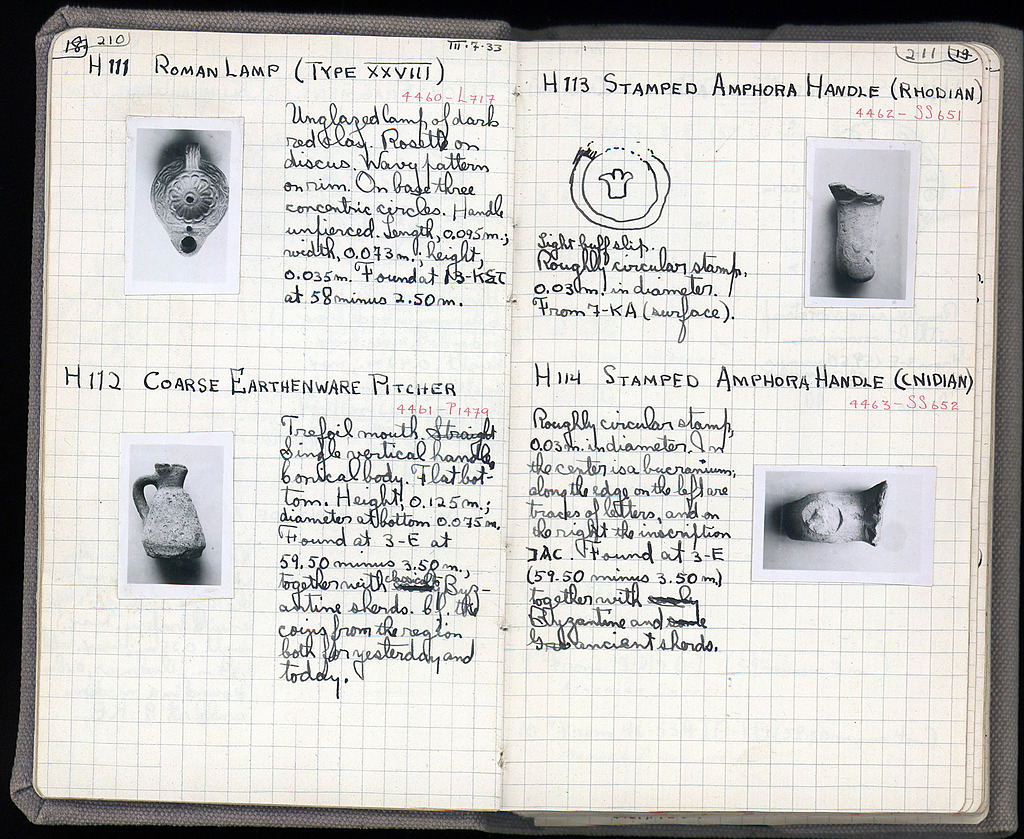 18 210
III.7.33
H 111 ROMAN LAMP (TYPE XXVIII)
4460-L717
Unglazed lamp of dark
red clay. Rosette on
discus. Wavy pattern
on rim. On base three
concentric circles. Handle
unpierced. Length, 0.095 m.;
width, 0.073 m.; height,
0.035 m. Found at
at 58 minus 2.50 m.
H 112 COARSE EARTHENWARE PITCHER
4461-P1479
Trefoil mouth. Straight
Single vertical handle.
Conical body. Flat bot-
tom. Height, 0.125 m.;
diameter at bottom 0.075 m.
Found at 3-E at
59.50 minus 3.50 m.,
together with classical & Byz-
antine sherds. Cf. the
coins from the region
both for yesterday and
today.
211 19
H 113 STAMPED AMPHORA HANDLE (RHODIAN)
4462-SS651
Light buff slip.
Roughly circular stamp,
0.03 m. in diameter.
From 7-KA (surface).
H 114 STAMPED AMPHORA HANDLE (CNIDIAN)
4463-SS652
Roughly circular stamp,
0.03 m. in diameter. In
the center is a bucranium;
along the edge on the left are
traces of letters, and on
the right the inscription
JAC. Found at 3-E
(59.50 minus 3.50 m.)
together with early
Byzantine and some
ancient sherds.